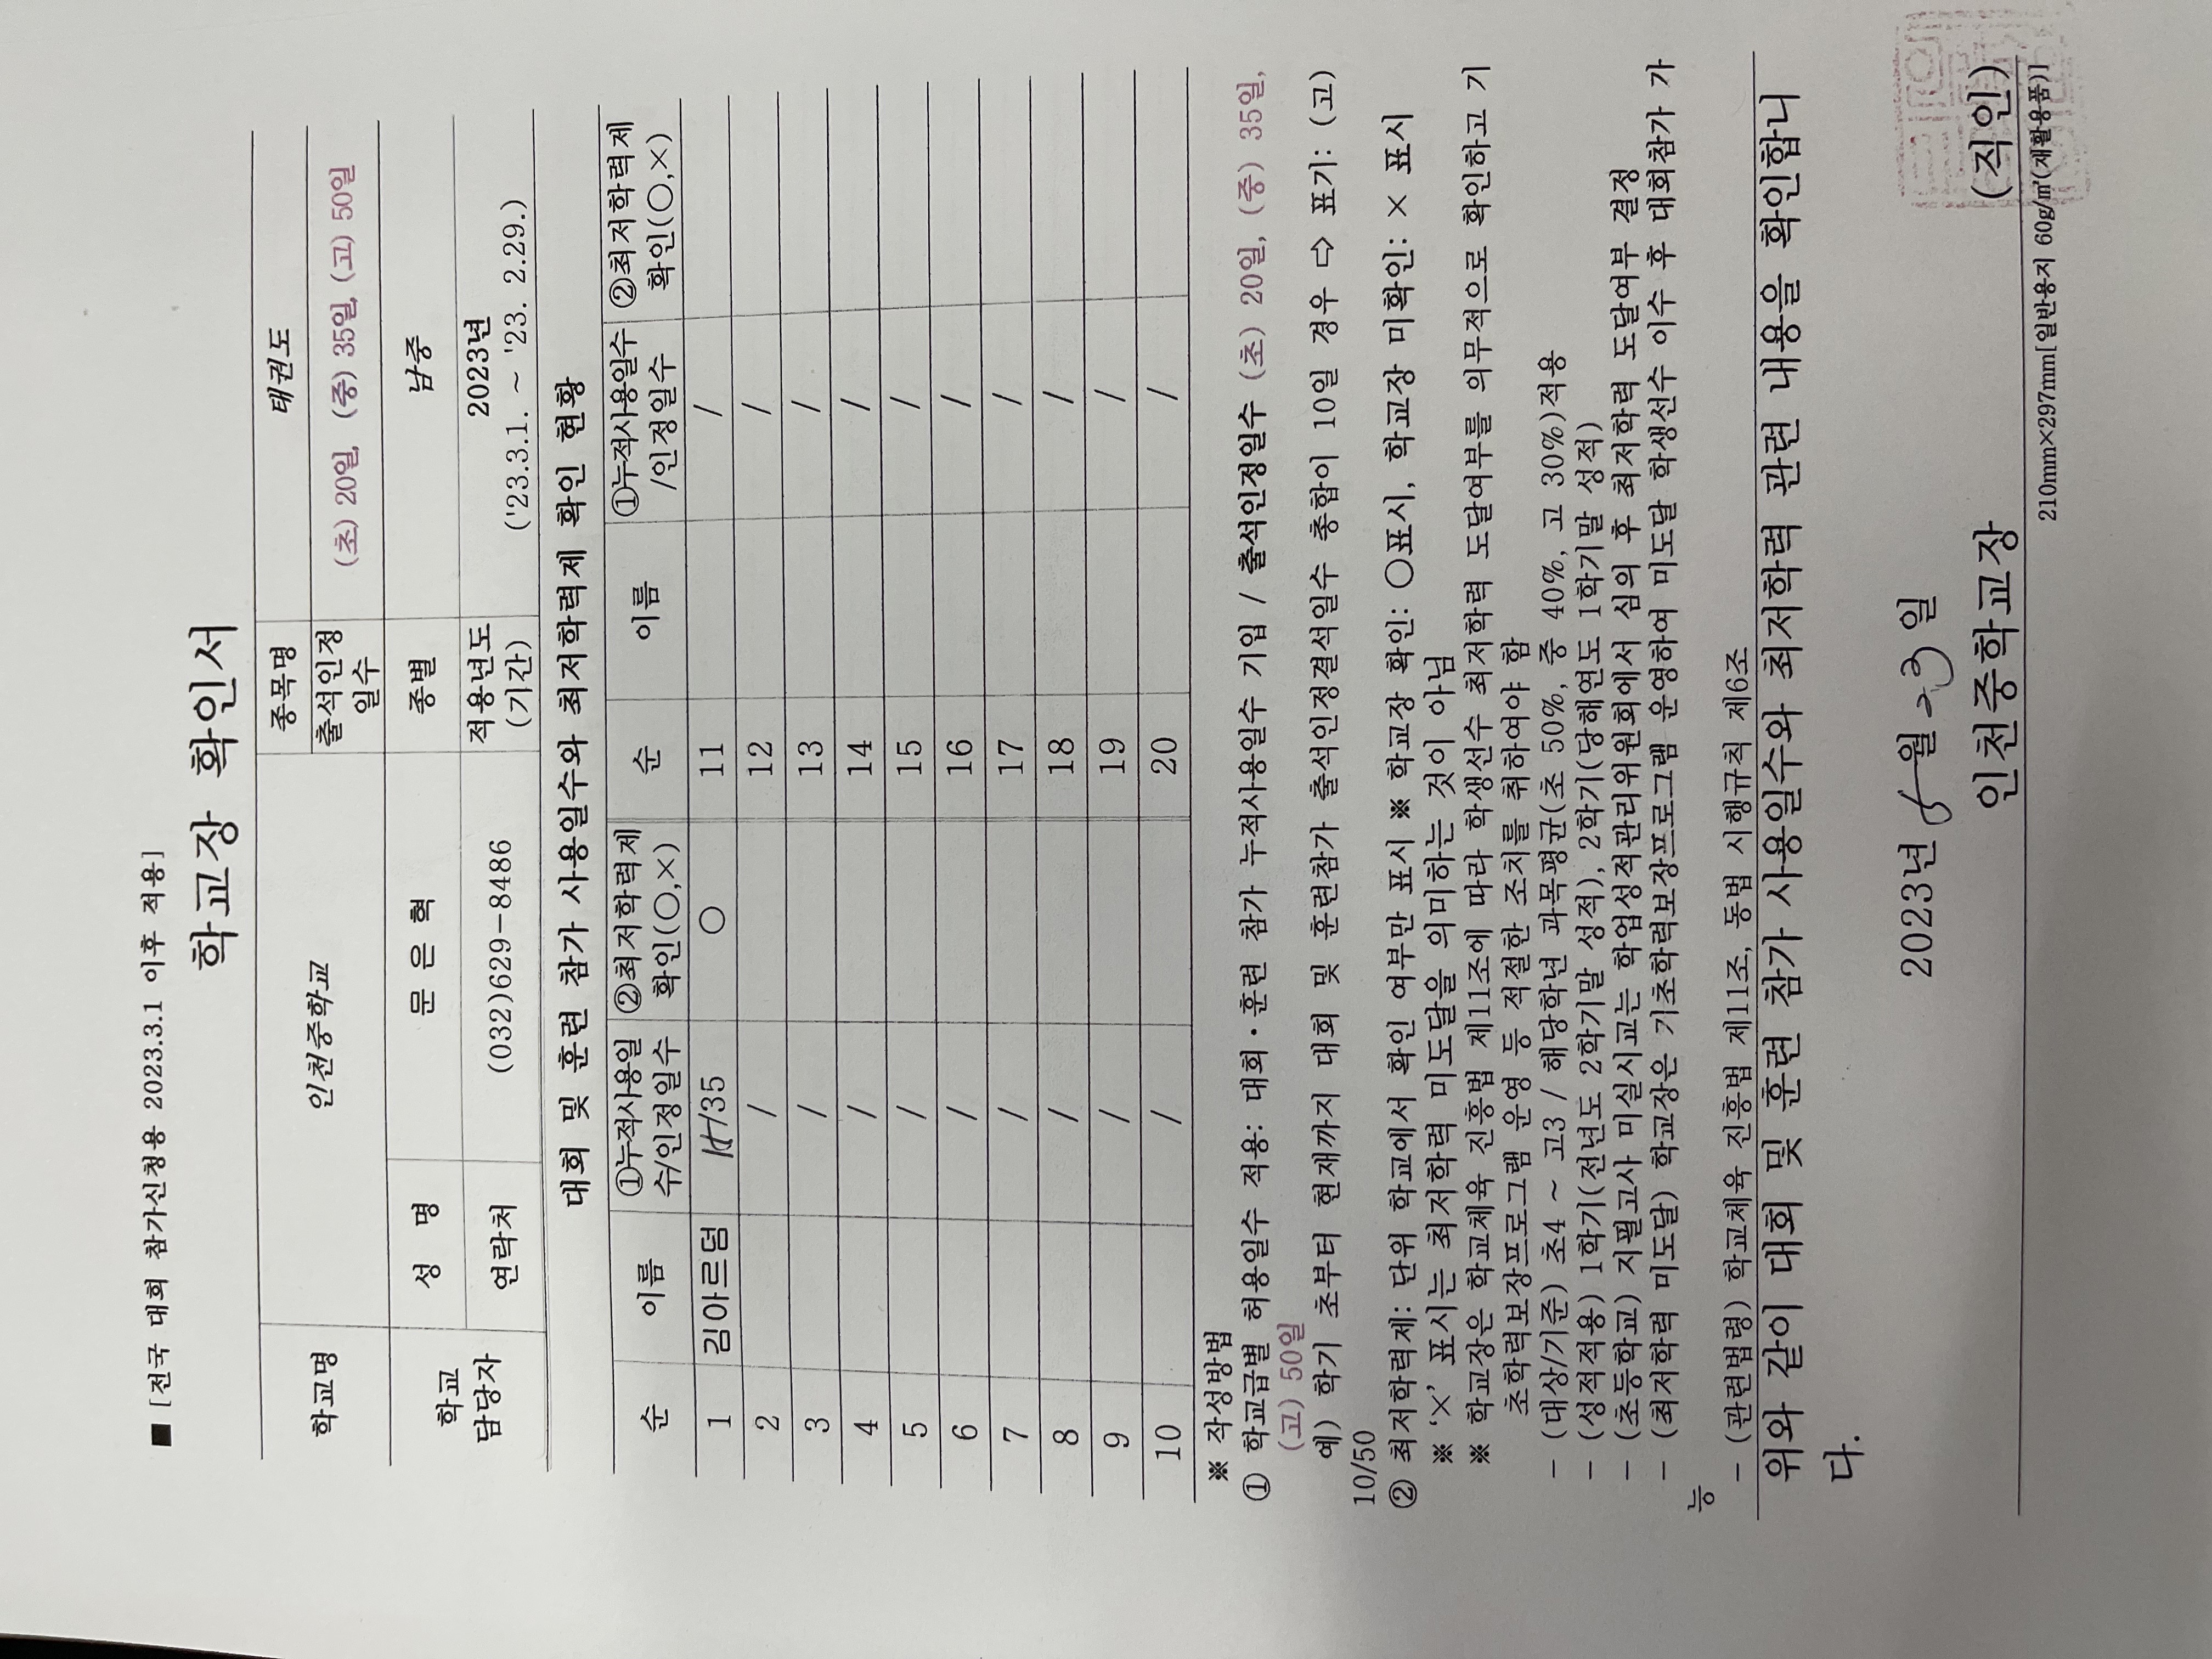 ■ [전국 대회 참가신청용 2023.3.1 이후 적용]
학교장 확인서
학교명 인천중학교 종목명 태권도
출석인정일수 (초) 20일, (중) 35일, (고) 50일
학교 담당자 성 명 문 은 혁 종별 남중
연락처 (032)629-8486 적용년도 (기간) 2023년 ('23.3.1. ~ '23. 2.29.)
대회 및 훈련 참가 사용일수와 최저학력제 확인 현황
순 이름 ①누적사용일수/인정일수 ②최저학력제 확인(○,×) 순 이름 ①누적사용일수/인정일수 ②최저학력제 확인(○,×)
1 김아르덤 /35 ○ 11 /
2 / 12 /
3 / 13 /
4 / 14 /
5 / 15 /
6 / 16 /
7 / 17 /
8 / 18 /
9 / 19 /
10 / 20 /
※ 작성방법
① 학교급별 허용일수 적용: 대회·훈련 참가 누적사용일수 기입 / 출석인정일수 (초) 20일, (중) 35일,
(고) 50일
예) 학기 초부터 현재까지 대회 및 훈련참가 출석인정결석일수 총합이 10일 경우 ⇨ 표기: (고)
10/50
② 최저학력제: 단위 학교에서 확인 여부만 표시 ※ 학교장 확인: ○표시, 학교장 미확인: × 표시
※ '×' 표시는 최저학력 미도달을 의미하는 것이 아님
※ 학교장은 학교체육 진흥법 제11조에 따라 학생선수 최저학력 도달여부를 의무적으로 확인하고 기
초학력보장프로그램 운영 등 적절한 조치를 취하여야 함
- (대상/기준) 초4 ~ 고3 / 해당학년 과목평균(초 50%, 중 40%, 고 30%)적용
- (성적적용) 1학기(전년도 2학기말 성적), 2학기(당해연도 1학기말 성적)
- (초등학교) 지필고사 미실시교는 학업성적관리위원회에서 심의 후 최저학력 도달여부 결정
- (최저학력 미도달) 학교장은 기초학력보장프로그램 운영하여 미도달 학생선수 이수 후 대회참가 가
능
- (관련법령) 학교체육 진흥법 제11조, 동법 시행규칙 제6조
위와 같이 대회 및 훈련 참가 사용일수와 최저학력 관련 내용을 확인합니
다.
2023년 월 23일
인천중학교장 (직인)
210mm×297mm[일반용지 60g/㎡(재활용품)]